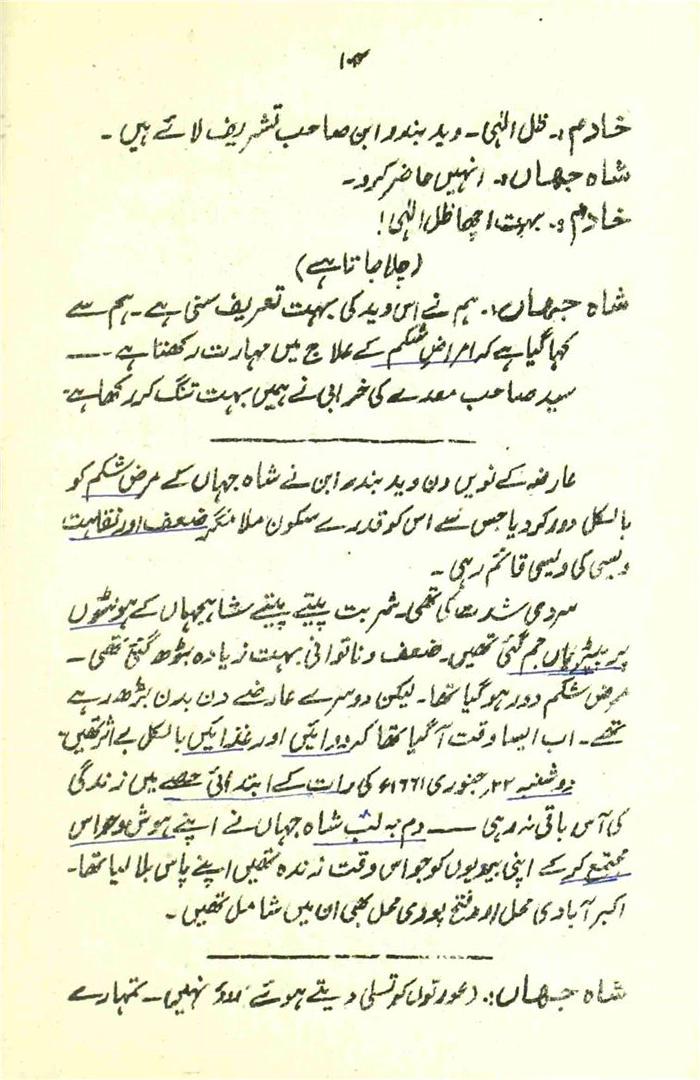 خادم:۔ ظل الٰہی۔ وید بندرابن صاحب تشریف لائے ہیں۔
شاہ جہاں:۔ انہیں حاضر کرو۔
خادم:۔ بہت اچھا ظل الٰہی!
(چلا جاتا ہے)
شاہ جہاں:۔ ہم نے اس وید کی بہت تعریف سنی ہے۔ ہم سے
کہا گیا ہے کہ امراضِ شکم کے علاج میں مہارت رکھتا ہے۔——
سید صاحب معدے کی خرابی نے ہمیں بہت تنگ کر رکھا ہے۔
عارضہ کے نویں دن وید بندرابن نے شاہ جہاں کے مرض شکم کو
بالکل دور کر دیا جس سے اس کو قدرے سکون ملا مگر ضعف اور نقاہت
ویسی کی ویسی قائم رہی۔
سردی شدت کی تھی۔ شربت پیتے پیتے شاہجہاں کے ہونٹوں
پر پپڑیاں جم گئی تھیں۔ ضعف و ناتوانی بہت زیادہ بڑھ گئی تھی۔
مرض شکم دور ہو گیا تھا۔ لیکن دوسرے عارضے دن بدن بڑھ رہے
تھے۔ اب ایسا وقت آ گیا تھا کہ دوائیں اور غذائیں بالکل بے اثر تھیں۔
دوشنبہ ۲۲ جنوری ۱۶۶۱ء کی رات کے ابتدائی حصے میں زندگی
کی آس باقی نہ رہی —— دم بہ لب شاہ جہاں نے اپنے ہوش و حواس
مجتمع کر کے اپنی بیویوں کو جو اس وقت زندہ تھیں اپنے پاس بلا لیا تھا۔
اکبر آبادی محل اور فتح پوری محل بھی ان میں شامل تھیں۔
شاہ جہاں:۔ (عورتوں کو تسلی دیتے ہوئے) نہیں۔ تمہارے